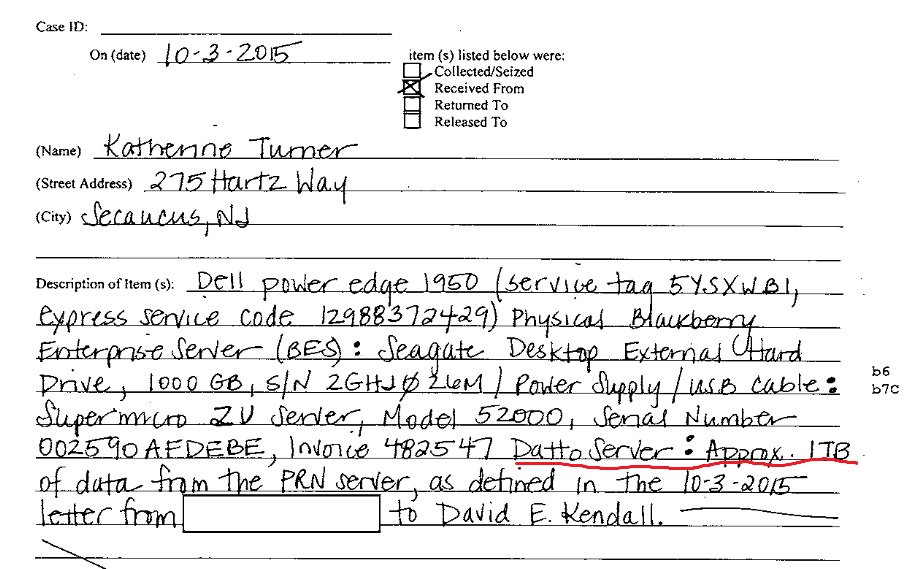 Case ID:
On (date) 10-3-2015 item (s) listed below were:
Collected/Seized
Received From
Returned To
Released To
(Name) Katherine Turner
(Street Address) 275 Hartz Way
(City) Secaucus, NJ
Description of Item (s): Dell power edge 1950 (service tag 5YSXWB1,
express service code 12988372429) Physical Blackberry
Enterprise Server (BES): Seagate Desktop External Hard
Drive, 1000 GB, S/N 2GHJ026M / Power Supply / USB cable:
b6
b7C
Supermicro 2U Server, Model 52000, Serial Number
002590AFDEBE, Invoice 482547 Datto Server: Approx. 1TB
of data from the PRN server, as defined in the 10-3-2015
letter from to David E. Kendall.